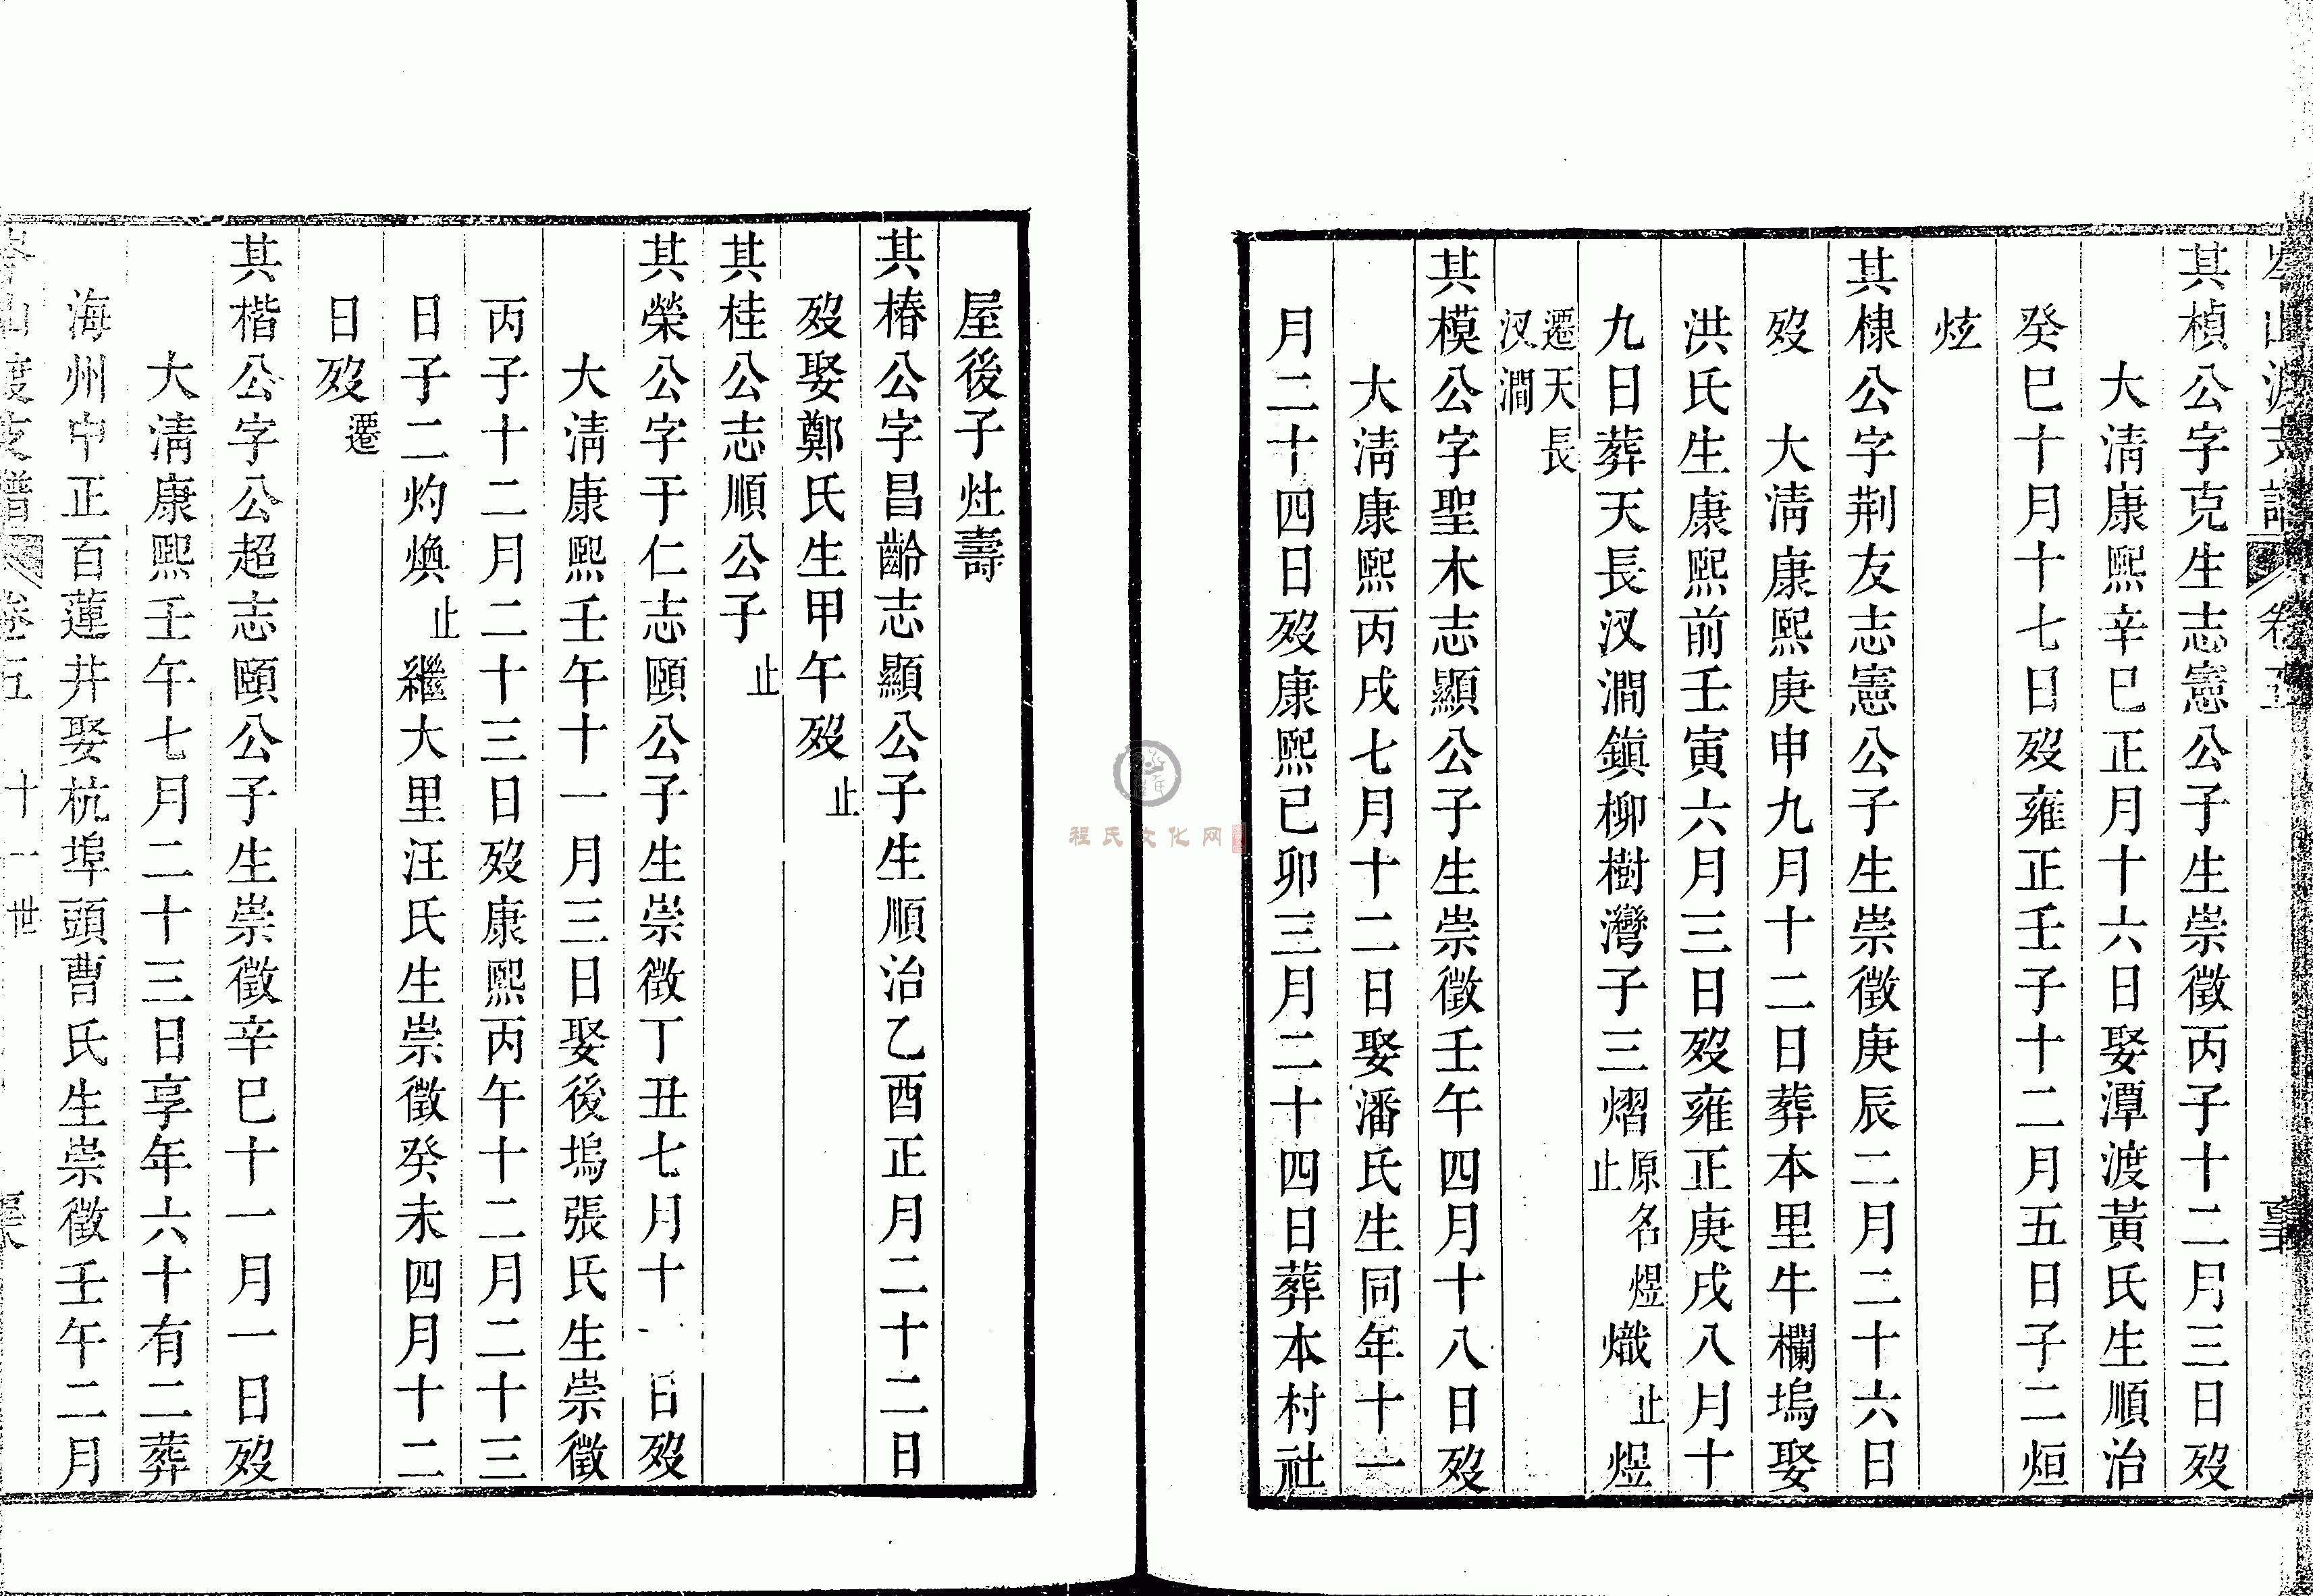 其楨公字克生志憲公子生崇徵丙子十二月三日歿
大淸康熙辛巳正月十六日娶潭渡黃氏生順治
癸巳十月十七日歿雍正壬子十二月五日子二烜
炫
其棣公字荆友志憲公子生崇徵庚辰二月二十六日
歿　大淸康熙庚申九月十二日葬本里牛欄塢娶
洪氏生康熙前壬寅六月三日歿雍正庚戌八月十
九日葬天長汊澗鎭柳樹灣子三熠原名煜止熾止煜
遷天長汊澗
其模公字聖木志顯公子生崇徵壬午四月十八日歿
大淸康熙丙戌七月十二日娶潘氏生同年十一
月二十四日歿康熙已卯三月二十四日葬本村社
屋後子灶壽
其椿公字昌齡志顯公子生順治乙酉正月二十二日
歿娶鄭氏生甲午歿止
其桂公志順公子止
其榮公字于仁志頤公子生崇徵丁丑七月十 日歿
大淸康熙壬午十一月三日娶後塢張氏生崇徵
丙子十二月二十三日歿康熙丙午十二月二十三
日子二灼煥止繼大里汪氏生崇徵癸未四月十二
日歿遷
其楷公字公超志頤公子生崇徵辛巳十一月一日歿
大淸康熙壬午七月二十三日享年六十有二葬
海州中正百蓮井娶杭埠頭曹氏生崇徵壬午二月
山渡支譜 卷五 十一世
程氏文化网